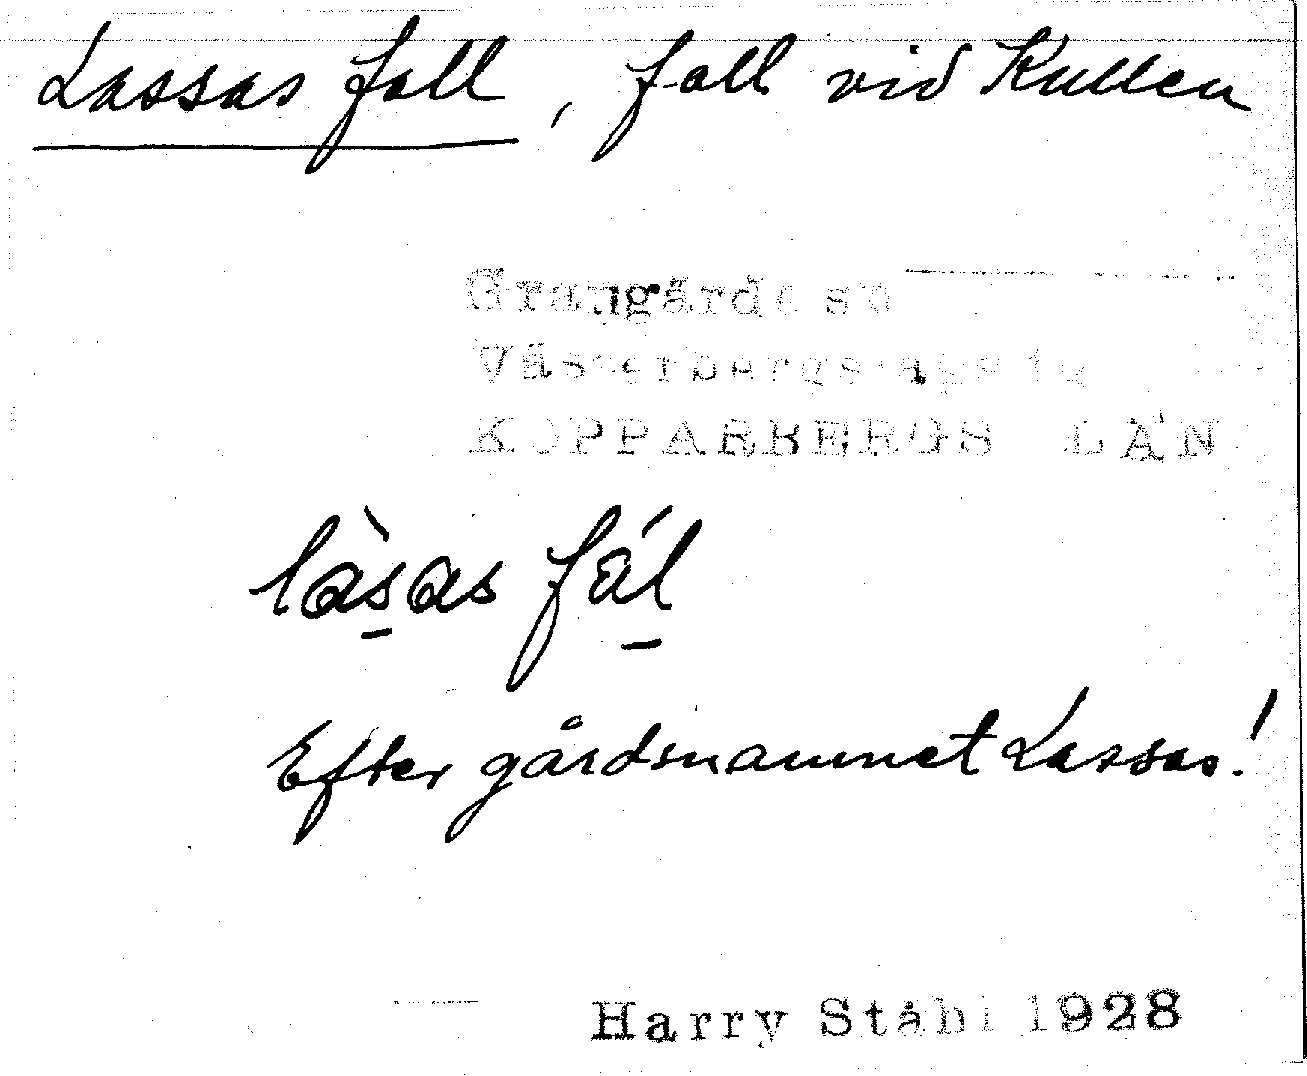 Lassas fall, fall vid Kullen
Grangärde sn
Västerbergslags tg
KOPPARBERGS LÄN
làs̠as fál̠
Efter gårdsnamnet Lassas!
Harry Ståhl 1928